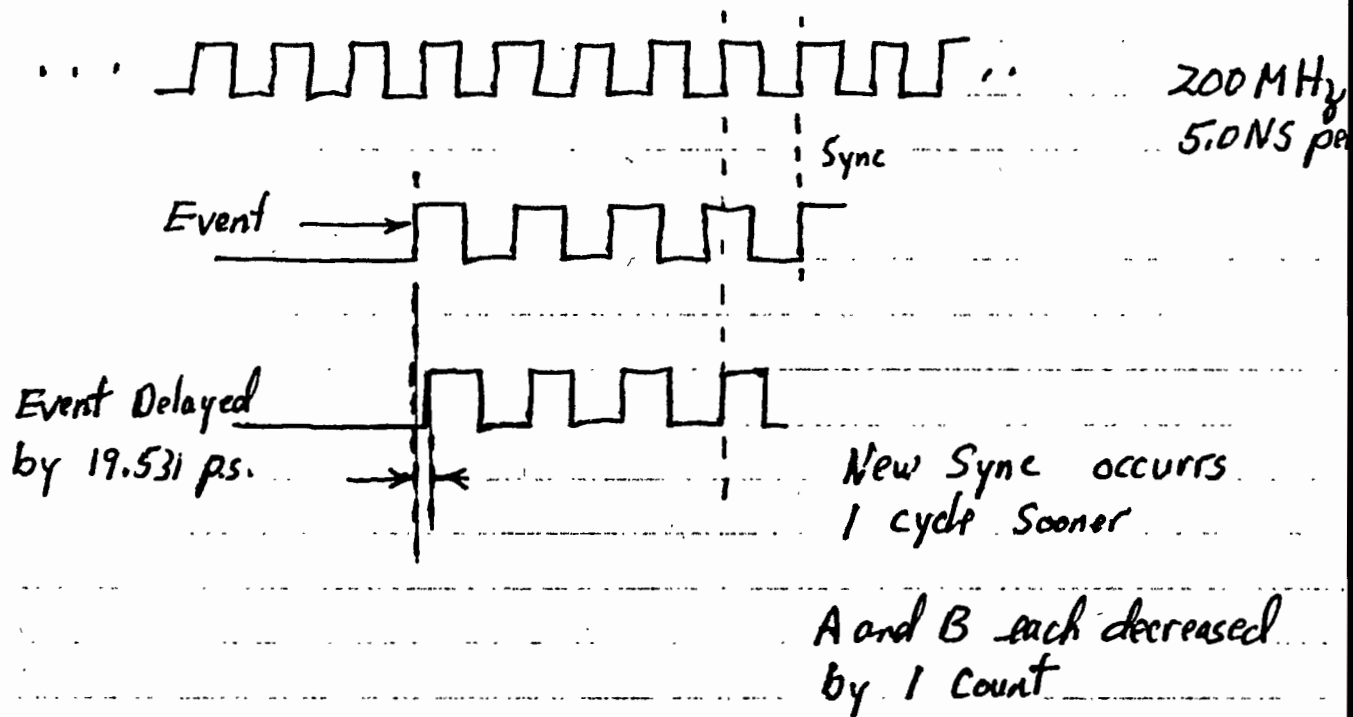 200 MHz
5.0NS per
Sync
Event
Event Delayed
by 19.531 p.s.
New Sync occurrs
1 cycle Sooner
A and B each decreased
by 1 Count